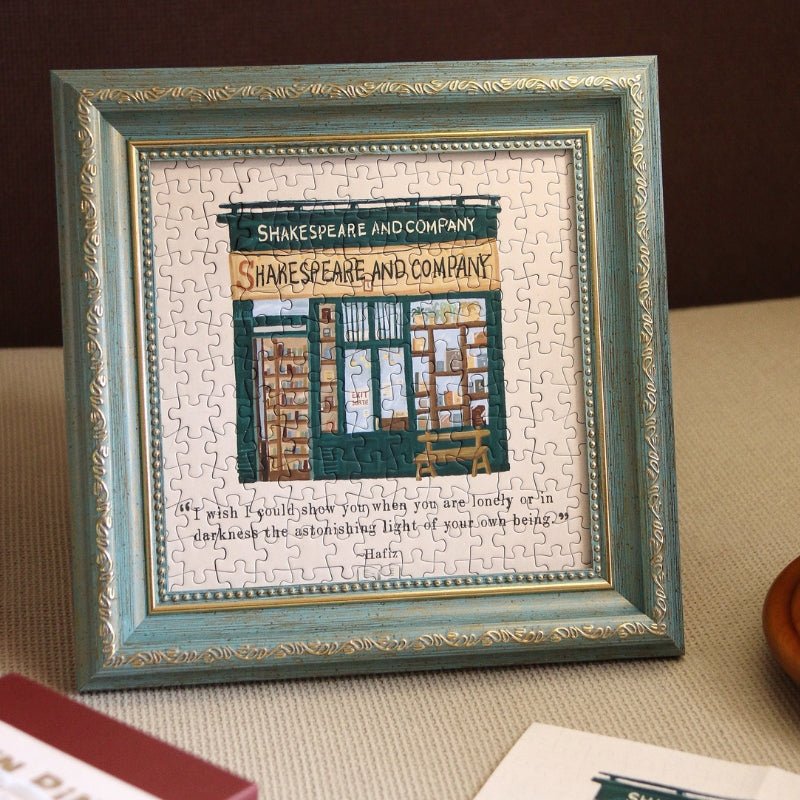 SHAKESPEARE AND COMPANY
SHAKESPEARE AND COMPANY
EXIT
“I wish I could show you when you are lonely or in
darkness the astonishing light of your own being.”
~Hafiz